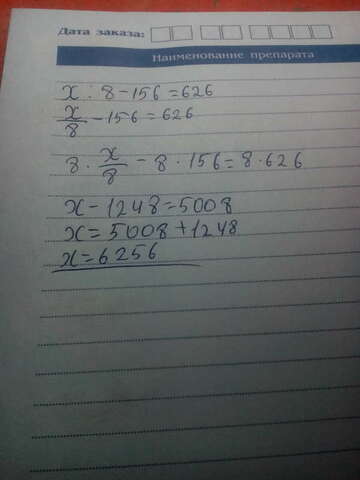 Дата заказа:
Наименование препарата
x : 8 - 156 = 626
x/8 - 156 = 626
8 · x/8 - 8 · 156 = 8 · 626
x - 1248 = 5008
x = 5008 + 1248
x = 6256